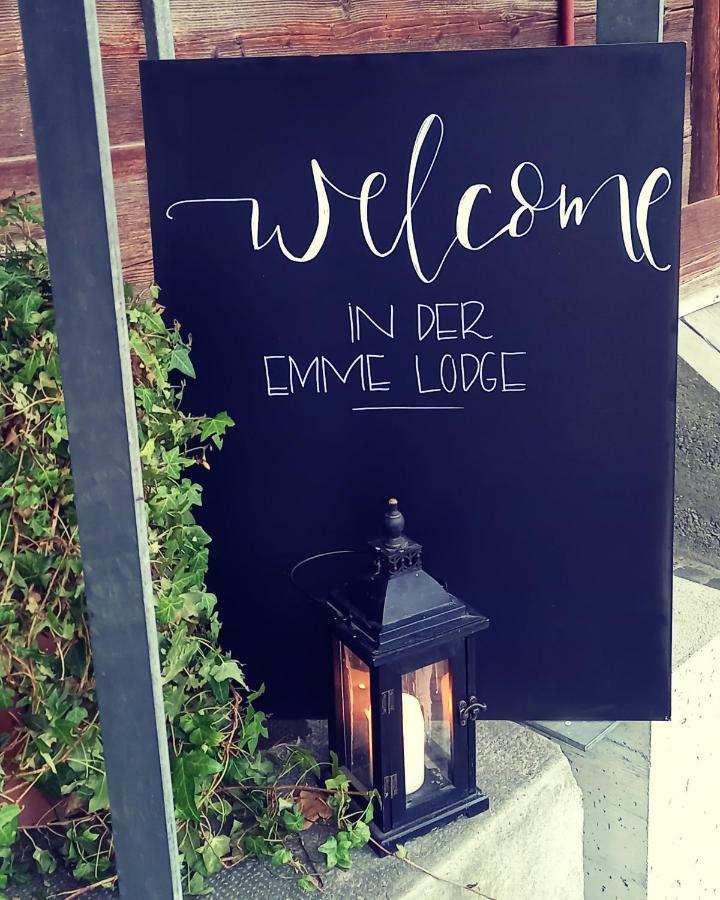 welcome
IN DER
EMME LODGE